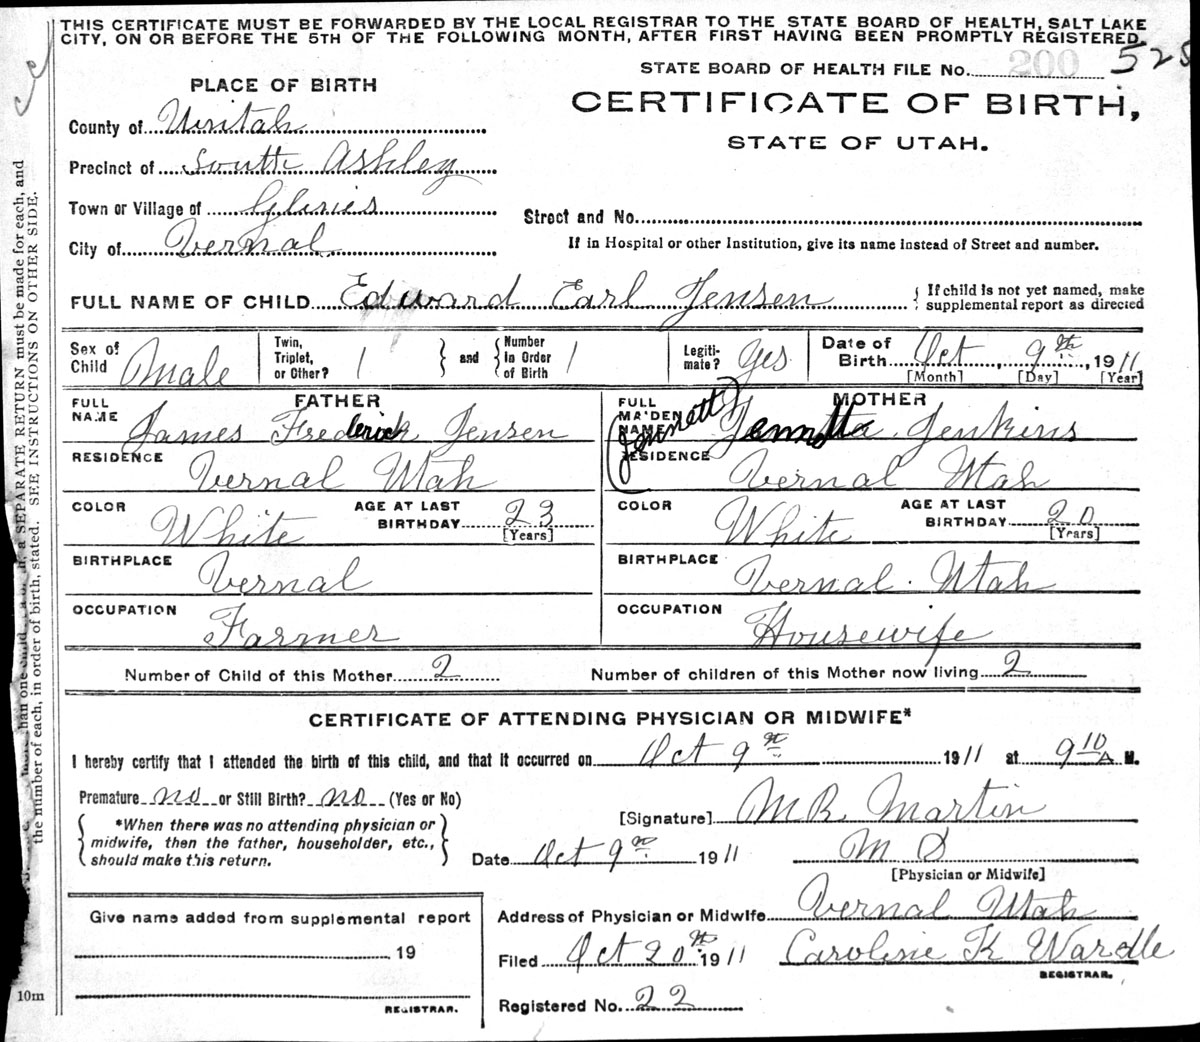 THIS CERTIFICATE MUST BE FORWARDED BY THE LOCAL REGISTRAR TO THE STATE BOARD OF HEALTH, SALT LAKE
CITY, ON OR BEFORE THE 5TH OF THE FOLLOWING MONTH, AFTER FIRST HAVING BEEN PROMPTLY REGISTERED.
STATE BOARD OF HEALTH FILE No. 200 528
PLACE OF BIRTH
CERTIFICATE OF BIRTH,
STATE OF UTAH.
County of Uintah
Precinct of South Ashley
Town or Village of
City of Vernal
Street and No.
If in Hospital or other Institution, give its name instead of Street and number.
FULL NAME OF CHILD Edward Earl Jensen { If child is not yet named, make supplemental report as directed
Sex of Child Male
Twin, Triplet, or Other? 1 } and { Number in Order of Birth 1
Legitimate? Yes
Date of Birth Oct 9th, 1911
[Month] [Day] [Year]
FATHER
FULL NAME James Frederick Jensen
RESIDENCE Vernal Utah
COLOR White AGE AT LAST BIRTHDAY 23 [Years]
BIRTHPLACE Vernal
OCCUPATION Farmer
MOTHER
FULL MAIDEN NAME (Jennett) Jennetta Jenkins
RESIDENCE Vernal Utah
COLOR White AGE AT LAST BIRTHDAY 20 [Years]
BIRTHPLACE Vernal. Utah
OCCUPATION Housewife
Number of Child of this Mother 2 Number of children of this Mother now living 2
CERTIFICATE OF ATTENDING PHYSICIAN OR MIDWIFE*
I hereby certify that I attended the birth of this child, and that it occurred on Oct 9th 1911 at 9 10 A M.
Premature no or Still Birth? no (Yes or No)
{ *When there was no attending physician or
midwife, then the father, householder, etc.,
should make this return. }
[Signature] M B Martin
Date Oct 9th 1911 M D
[Physician or Midwife]
Give name added from supplemental report
19
REGISTRAR.
Address of Physician or Midwife Vernal Utah
Filed Oct 20th 1911 Caroline K Wardle
REGISTRAR.
Registered No. 22
10m
a SEPARATE RETURN must be made for each, and
the number of each, in order of birth, stated. SEE INSTRUCTIONS ON OTHER SIDE.